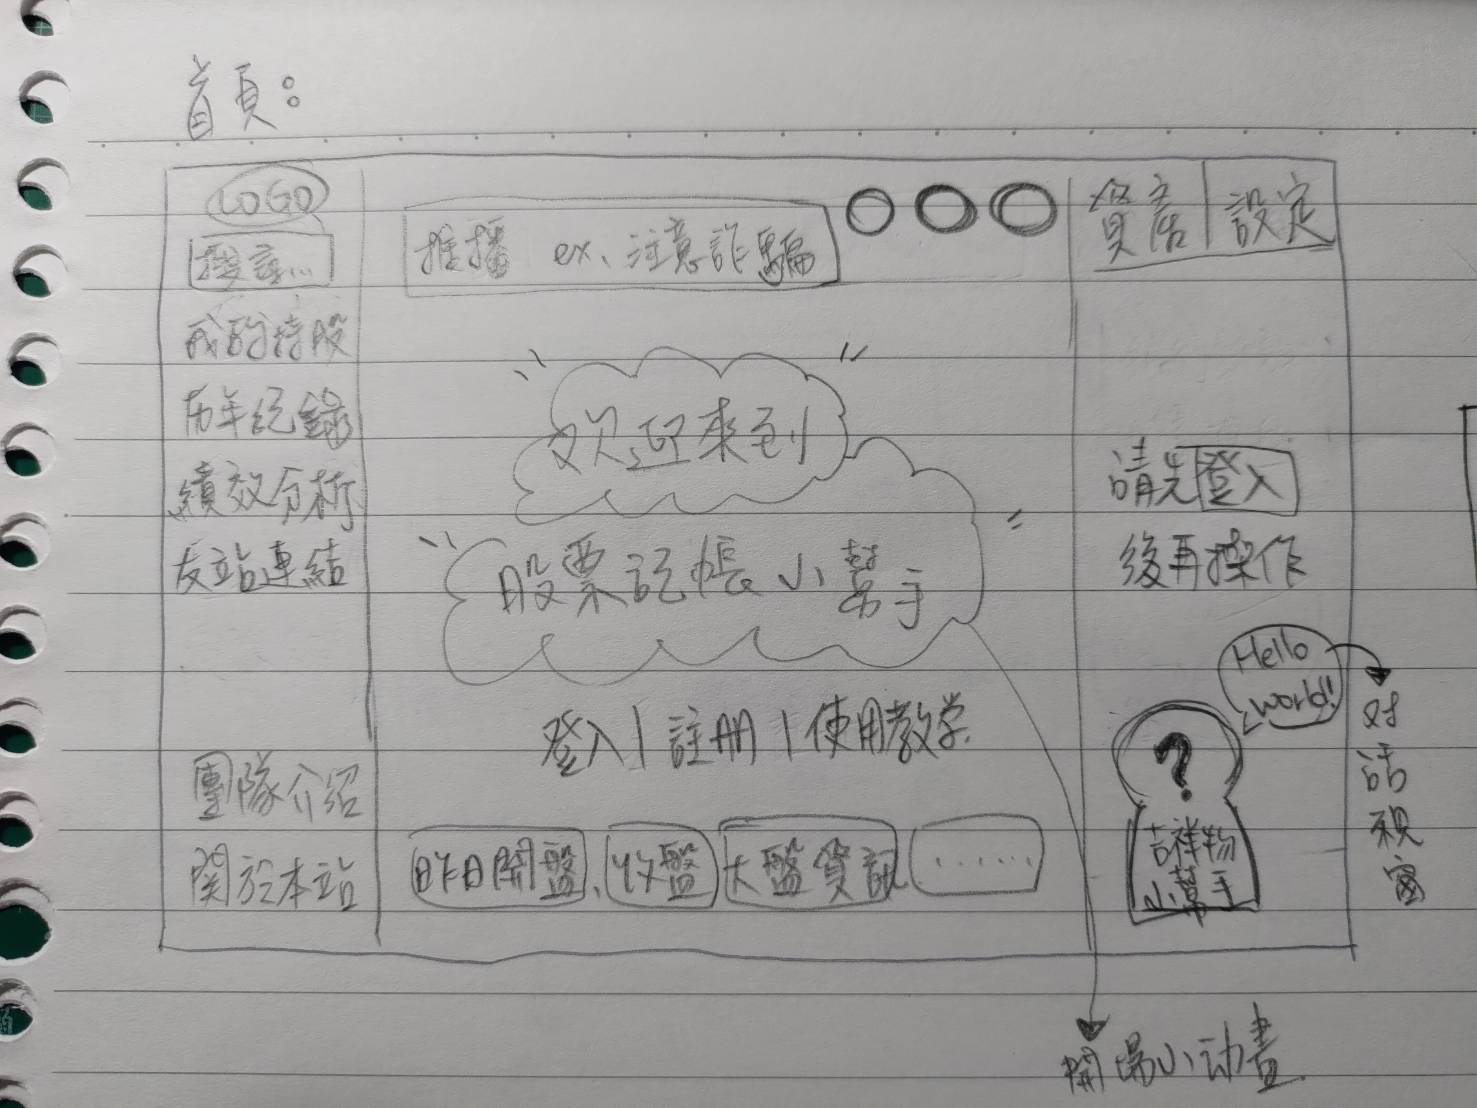 首頁：
LOGO
搜尋...
我的持股
历年紀錄
績效分析
友站連結
團隊介紹
関於本站
推播 ex、注意詐騙
欢迎來到
股票記帳小幫手
登入 | 註冊 | 使用教学
昨日開盤、收盤 大盤資訊 ......
資产 設定
請先登入
後再操作
Hello
world!
?
吉祥物
小幫手
对話視窗
開場小动畫